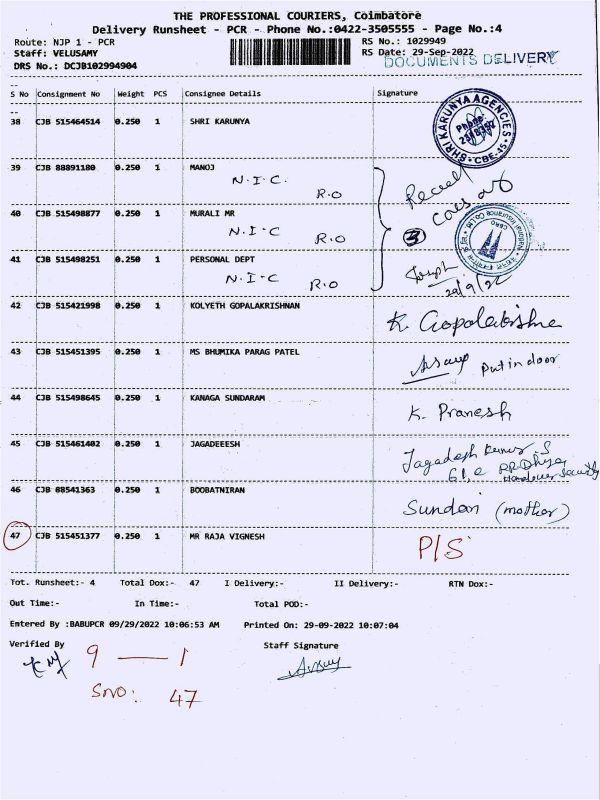 THE PROFESSIONAL COURIERS, Coimbatore
Delivery Runsheet - PCR - Phone No.:0422-3505555 - Page No.:4
Route: NJP 1 - PCR
RS No.: 1029949
Staff: VELUSAMY
RS Date: 29-Sep-2022
DOCUMENTS DELIVERY
DRS No.: DCJB102994904
S No Consignment No Weight PCS Consignee Details Signature
38 CJB 515464514 0.250 1 SHRI KARUNYA
SHRI KARUNYA AGENCIES
Phone:
CBE-15
39 CJB 88891180 0.250 1 MANOJ
N.I.C. R.O
40 CJB 515498877 0.250 1 MURALI MR
N.I.C R.O
3
41 CJB 515498251 0.250 1 PERSONAL DEPT
N.I.C R.O
29/9/22
42 CJB 515421998 0.250 1 KOLYETH GOPALAKRISHNAN
K. Gopalakrishna
43 CJB 515451395 0.250 1 MS BHUMIKA PARAG PATEL
Put in door
44 CJB 515498645 0.250 1 KANAGA SUNDARAM
K. Pranesh
45 CJB 515461402 0.250 1 JAGADEEESH
Jagadesh Kumar S
46 CJB 88541363 0.250 1 BOOBATNIRAN
Sundari (mother)
47 CJB 515451377 0.250 1 MR RAJA VIGNESH
P/S
Tot. Runsheet:- 4 Total Dox:- 47 I Delivery:- II Delivery:- RTN Dox:-
Out Time:- In Time:- Total POD:-
Entered By :BABUPCR 09/29/2022 10:06:53 AM Printed On: 29-09-2022 10:07:04
Verified By Staff Signature
9 — 1
SNO: 47